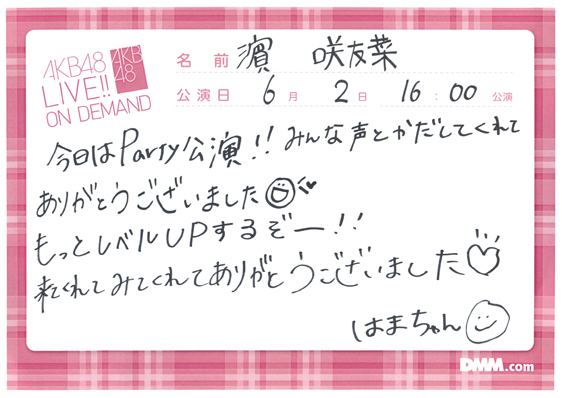 AKB48 LIVE!! ON DEMAND
AKB48
名前 濵 咲友菜
公演日 6月 2日 16:00 公演
今日はParty公演!! みんな声とかだしてくれて
ありがとうございました
もっとレベルUPするぞー!!
来てくれてみてくれてありがとうございました
はまちゃん
DMM.com